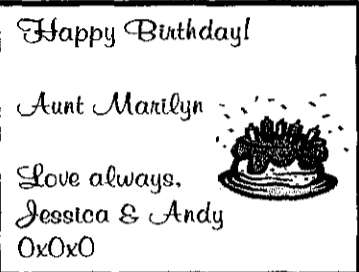 Happy Birthday!
Aunt Marilyn
Love always,
Jessica & Andy
OxOxO